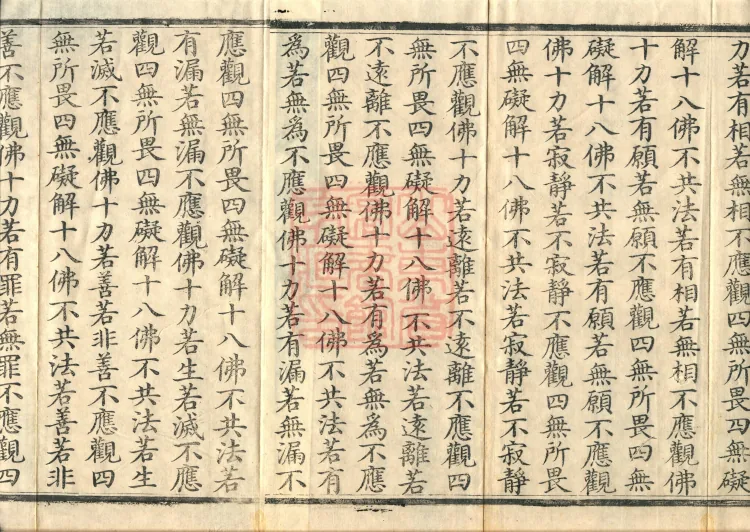 力若有相若無相不應觀四無所畏四無礙
解十八佛不共法若有相若無相不應觀佛
十力若有願若無願不應觀四無所畏四無
礙解十八佛不共法若有願若無願不應觀
佛十力若寂靜若不寂靜不應觀四無所畏
四無礙解十八佛不共法若寂靜若不寂靜
不應觀佛十力若遠離若不遠離不應觀四
無所畏四無礙解十八佛不共法若遠離若
不遠離不應觀佛十力若有為若無為不應
觀四無所畏四無礙解十八佛不共法若有
為若無為不應觀佛十力若有漏若無漏不
應觀四無所畏四無礙解十八佛不共法若
有漏若無漏不應觀佛十力若生若滅不應
觀四無所畏四無礙解十八佛不共法若生
若滅不應觀佛十力若善若非善不應觀四
無所畏四無礙解十八佛不共法若善若非
善不應觀佛十力若有罪若無罪不應觀四